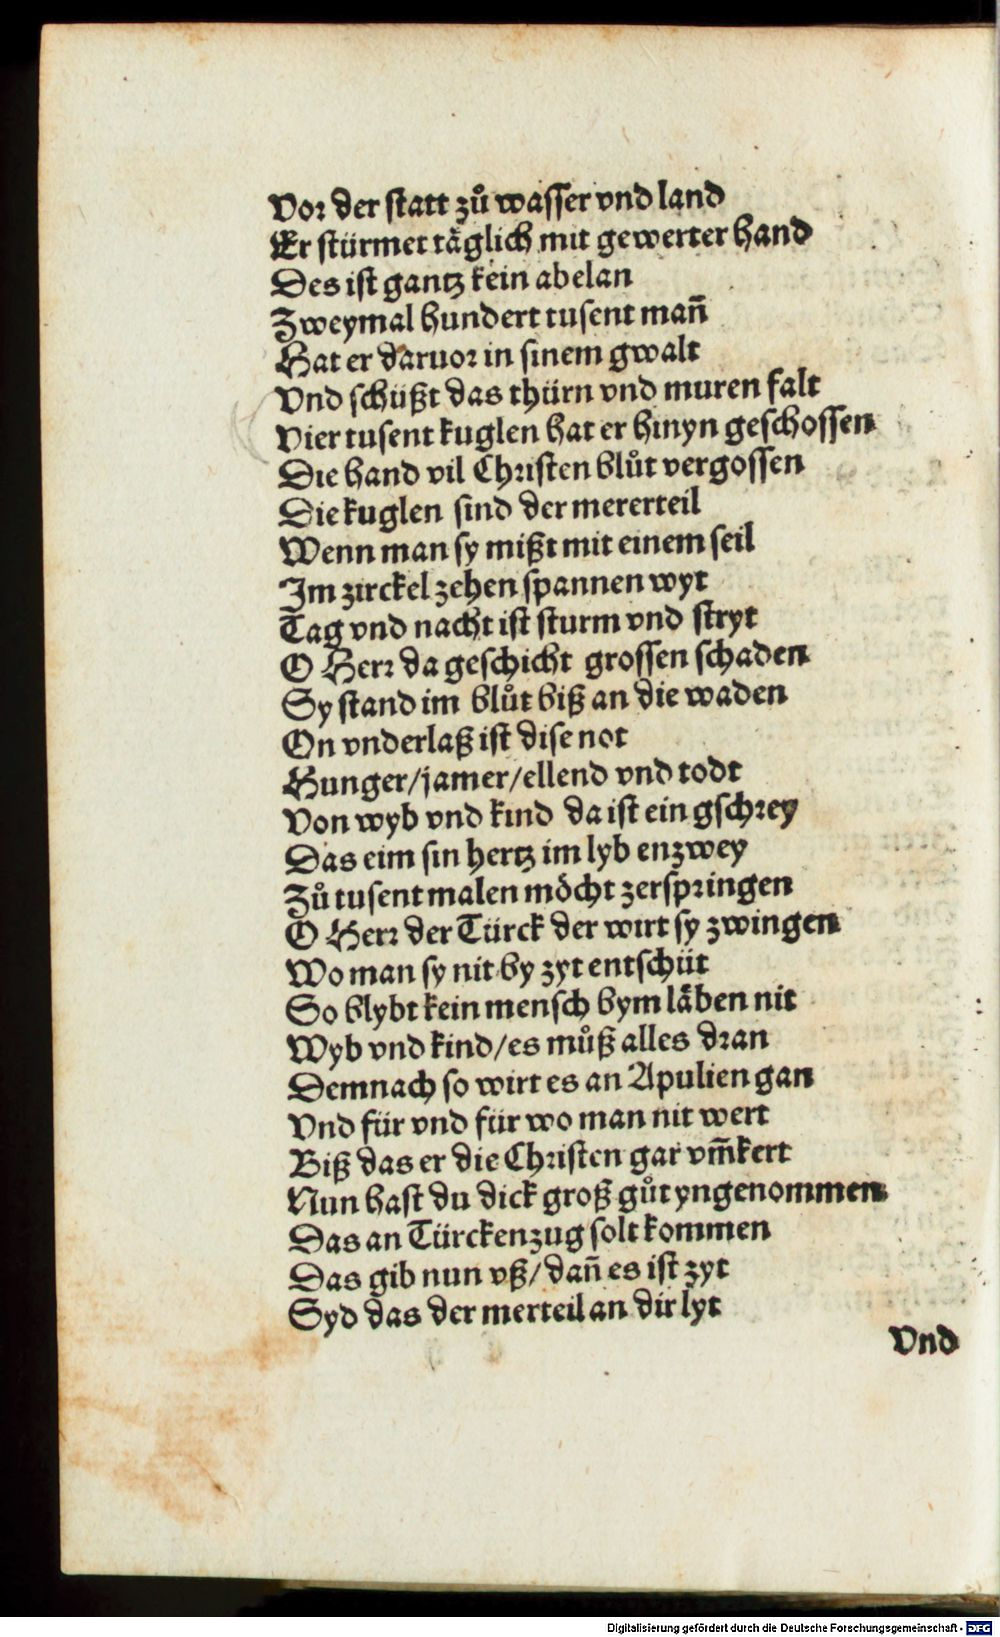 Vor der statt zů wasser vnd land
Er stürmet täglich mit gewerter hand
Des ist gantz kein abelan
Zweymal hundert tusent mañ
Hat er daruor in sinem gwalt
Vnd schüßt das thürn vnd muren falt
Vier tusent kuglen hat er hinyn geschossen
Die hand vil Christen blůt vergossen
Die kuglen sind der mererteil
Wenn man sy mißt mit einem seil
Im zirckel zehen spannen wyt
Tag vnd nacht ist sturm vnd stryt
O Herr da geschicht grossen schaden
Sy stand im blůt biß an die waden
On vnderlaß ist dise not
Hunger/jamer/ellend vnd todt
Von wyb vnd kind da ist ein gschrey
Das eim sin hertz im lyb enzwey
Zů tusent malen möcht zerspringen
O Herr der Türck der wirt sy zwingen
Wo man sy nit by zyt entschüt
So blybt kein mensch bym läben nit
Wyb vnd kind/es můß alles dran
Demnach so wirt es an Apulien gan
Vnd für vnd für wo man nit wert
Biß das er die Christen gar vm̃kert
Nun hast du dick groß gůt yngenommen
Das an Türckenzug solt kommen
Das gib nun vß/dañ es ist zyt
Syd das der merteil an dir lyt
Vnd
Digitalisierung gefördert durch die Deutsche Forschungsgemeinschaft - DFG